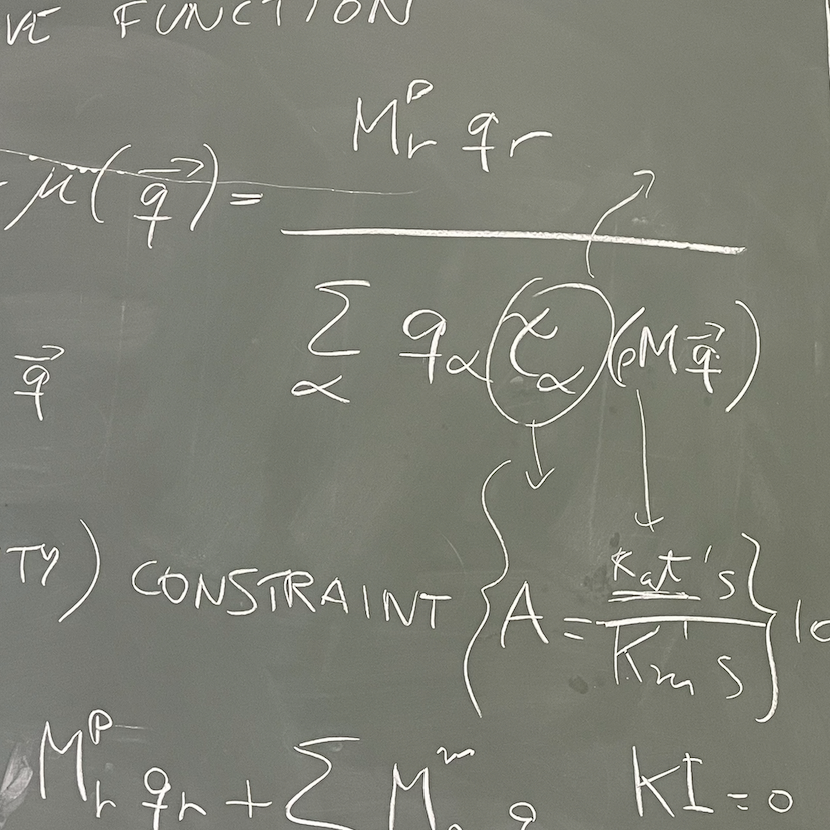 VE FUNCTION
M_r^P q_r
μ(q⃗) =
Σ_α q_α τ_α (ρM q⃗)
q⃗
TY) CONSTRAINT { A = kcat's / Km's }
M_r^P q_r + Σ M^m q KI = 0